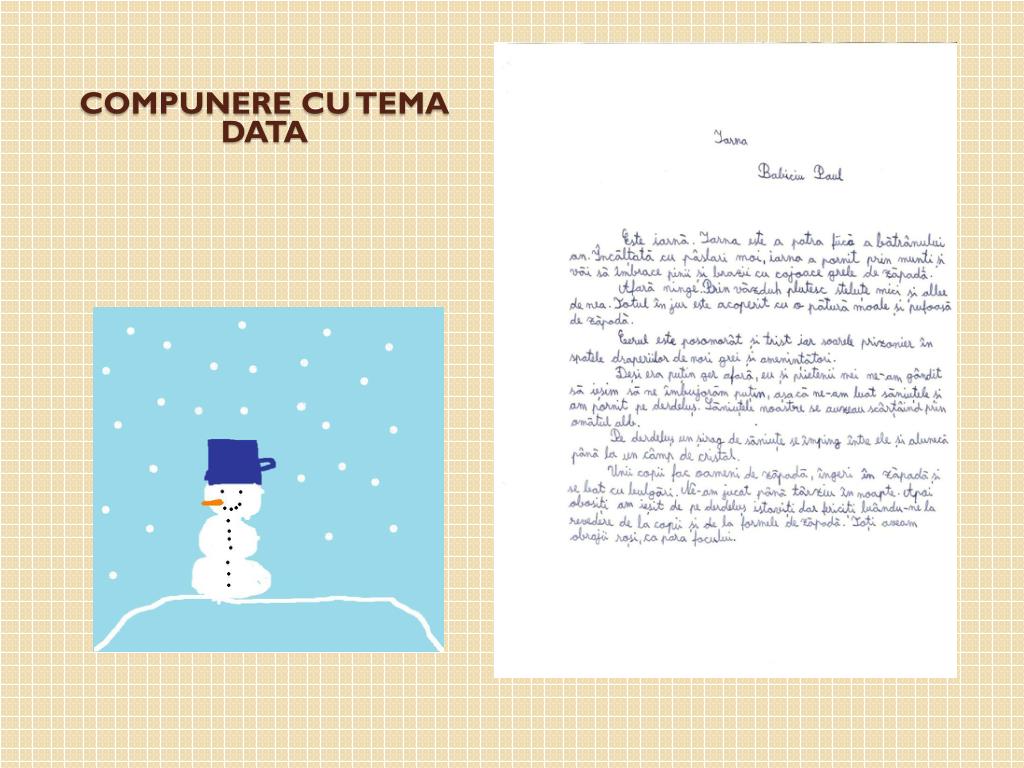 COMPUNERE CU TEMA
DATA
Iarna
Babiciu Paul
Este iarnă. Iarna este a patra fiică a bătrânului
an. Încălțată cu pâslari moi, iarna a pornit prin munți și
văi să îmbrace pinii și brazii cu cojoace grele de zăpadă.
Afară ninge. Prin văzduh plutesc steluțe mici și albe
de nea. Totul în jur este acoperit cu o pătură moale și pufoasă
de zăpadă.
Cerul este posomorât și trist iar soarele prizonier în
spatele draperiilor de nori grei și amenințători.
Deși era puțin ger afară, eu și prietenii mei ne-am gândit
să ieșim să ne îmbujorăm puțin, așa că ne-am luat săniuțele și
am pornit pe derdeluș. Săniuțele noastre se auzeau scârțâind prin
omătul alb.
Pe derdeluș un șirag de săniuțe se împing între ele și alunecă
până la un câmp de cristal.
Unii copii fac oameni de zăpadă, îngeri în zăpadă și
se bat cu bulgări. Ne-am jucat până târziu în noapte. Apoi
obosiți am ieșit de pe derdeluș istoviți dar fericiți luându-ne la
revedere de la copii și de la formele de zăpadă. Toți aveam
obrajii roși, ca para focului.